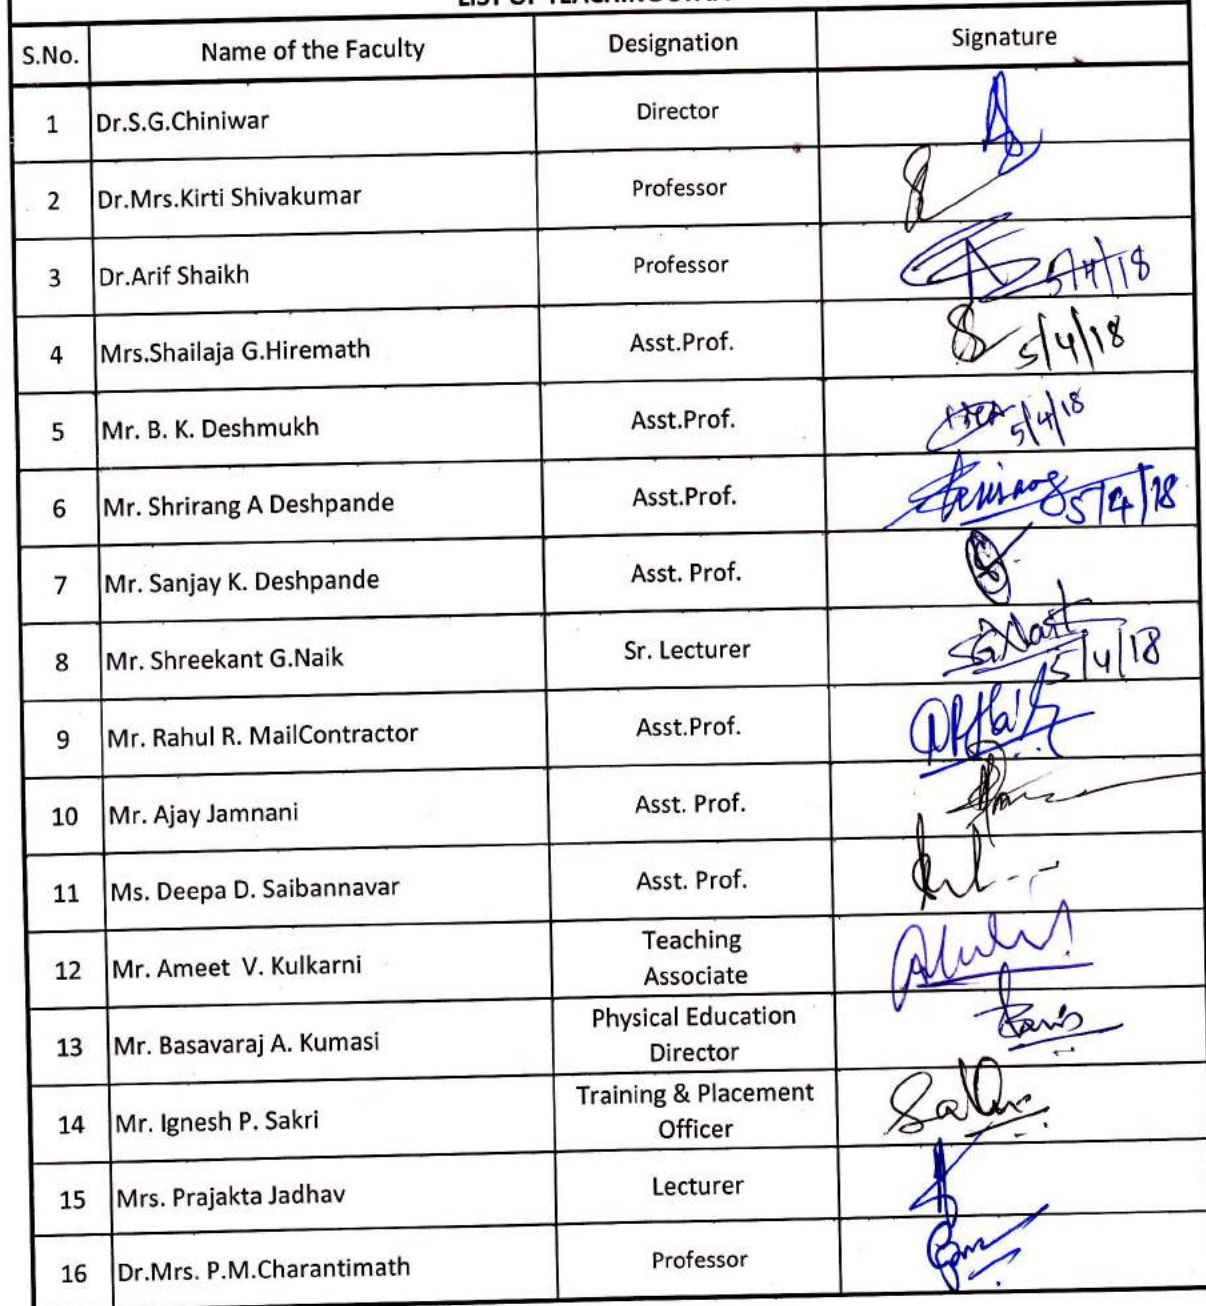 LIST OF TEACHING STAFF
S.No. Name of the Faculty Designation Signature
1 Dr.S.G.Chiniwar Director
2 Dr.Mrs.Kirti Shivakumar Professor
3 Dr.Arif Shaikh Professor 5/4/18
4 Mrs.Shailaja G.Hiremath Asst.Prof. 5/4/18
5 Mr. B. K. Deshmukh Asst.Prof. 5/4/18
6 Mr. Shrirang A Deshpande Asst.Prof. Shrirang 5/4/18
7 Mr. Sanjay K. Deshpande Asst. Prof.
8 Mr. Shreekant G.Naik Sr. Lecturer SGNaik
5/4/18
9 Mr. Rahul R. MailContractor Asst.Prof.
10 Mr. Ajay Jamnani Asst. Prof.
11 Ms. Deepa D. Saibannavar Asst. Prof.
12 Mr. Ameet V. Kulkarni Teaching
Associate
13 Mr. Basavaraj A. Kumasi Physical Education
Director
14 Mr. Ignesh P. Sakri Training & Placement
Officer
15 Mrs. Prajakta Jadhav Lecturer
16 Dr.Mrs. P.M.Charantimath Professor